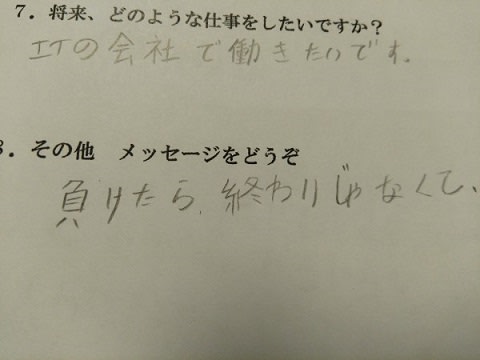 7．将来、どのような仕事をしたいですか？
ITの会社で働きたいです。
8．その他　メッセージをどうぞ
負けたら、終わりじゃなくて、